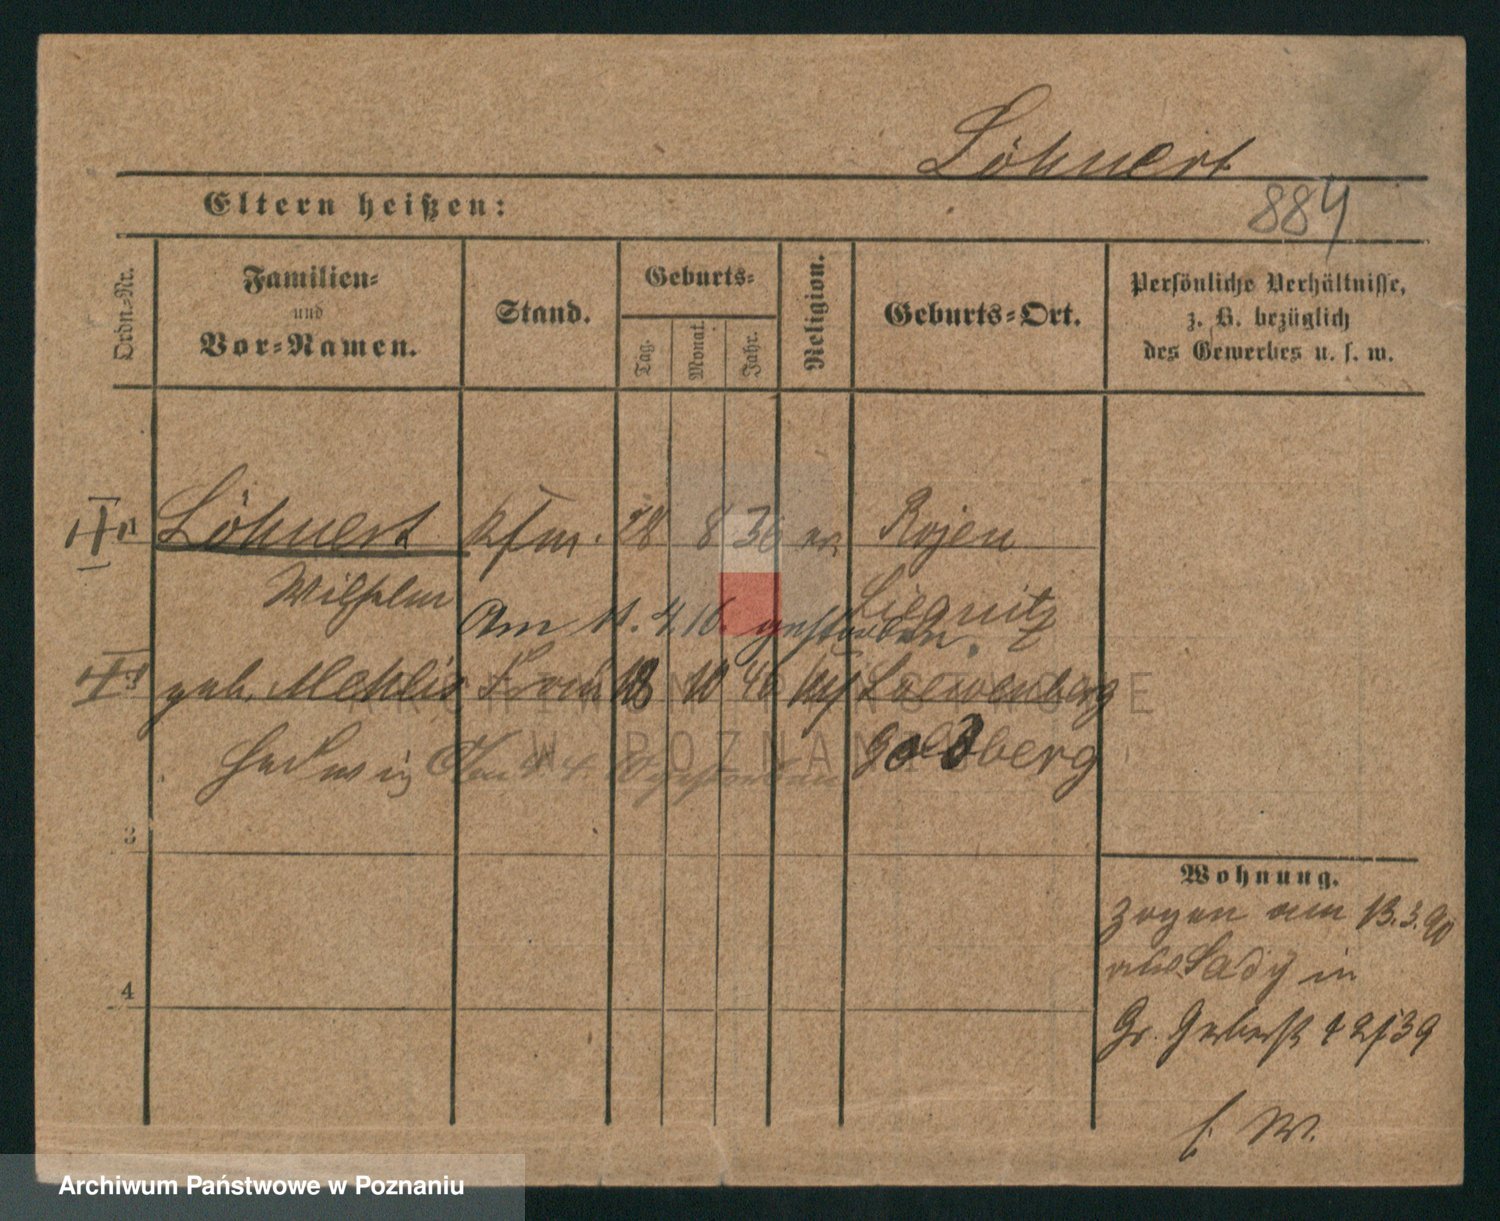 Löhnert
Eltern heißen:
884
Ordn.-Nr.
Familien-
und
Vor-Namen.
Stand.
Geburts-
Tag.
Monat.
Jahr.
Religion.
Geburts-Ort.
Persönliche Verhältnisse,
z. B. bezüglich
des Gewerbes u. s. w.
Löhnert Kfm. 28 8 36 ev Rojen
Wilhelm Liegnitz
Am 11. 4. 16. gestorben.
geb. Mehlis Frau 18 10 46 Loewenberg
Hedwig Goldberg
gestorben
ARCHIWUM PAŃSTWOWE
W POZNANIU
3
4
Wohnung.
zogen am 13.3.90
aus Sady in
Gr. Gerberstr
f. W.
Archiwum Państwowe w Poznaniu